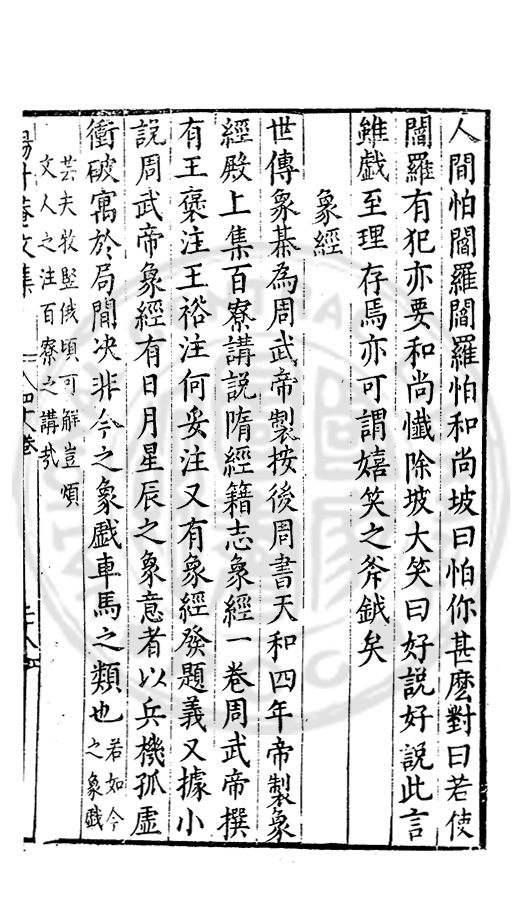 人間怕閻羅閻羅怕和尚坡曰怕你甚麽對曰若使
閻羅有犯亦要和尚懺除坡大笑曰好說好說此言
雖戲至理存焉亦可謂嬉笑之斧鉞矣
象經
世傳象棊為周武帝製按後周書天和四年帝製象
經殿上集百寮講說隋經籍志象經一卷周武帝撰
有王褒注王裕注何妥注又有象經發題義又據小
說周武帝象經有日月星辰之象意者以兵機孤虛
衝破寓於局間决非今之象戲車馬之類也若如今
之象戲
芸夫牧豎俄頃可解豈煩
文人之注百寮之講哉
升菴文集